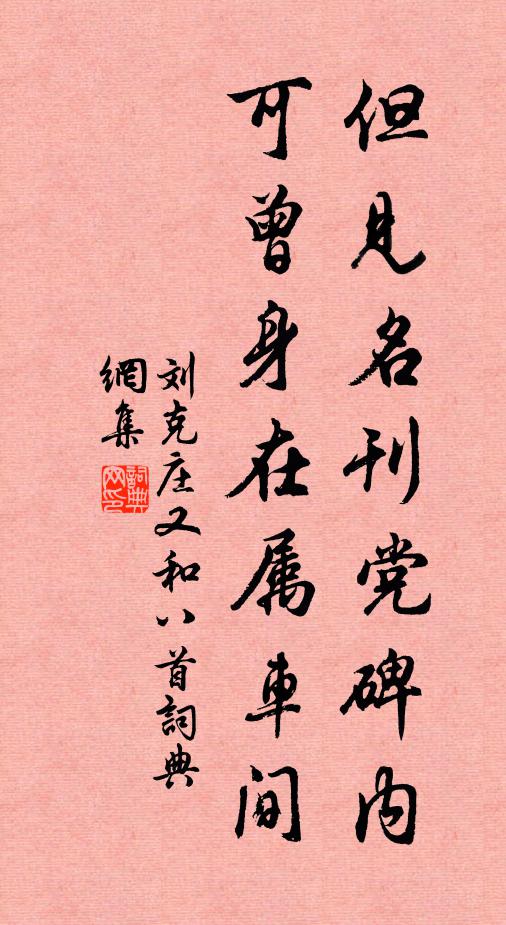 但见名刊党碑内
可曾身在属車间
刘克庄又和八首詞典
網集
詞典网印